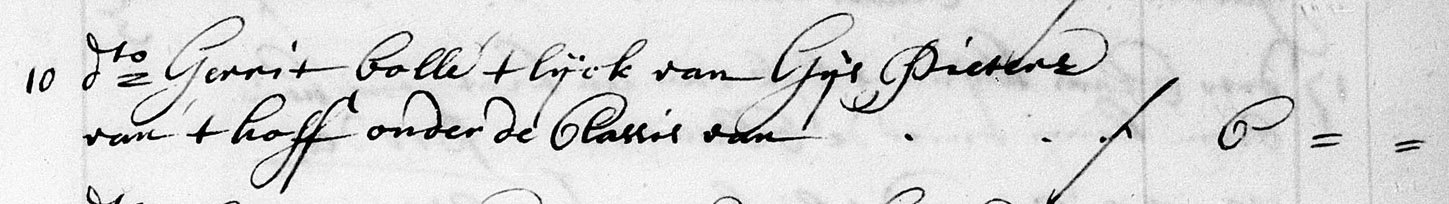 10 dto Gerrit bolle t lijck van Gijs Pieters
van t hoff onder de Classis van . . f 6 = =